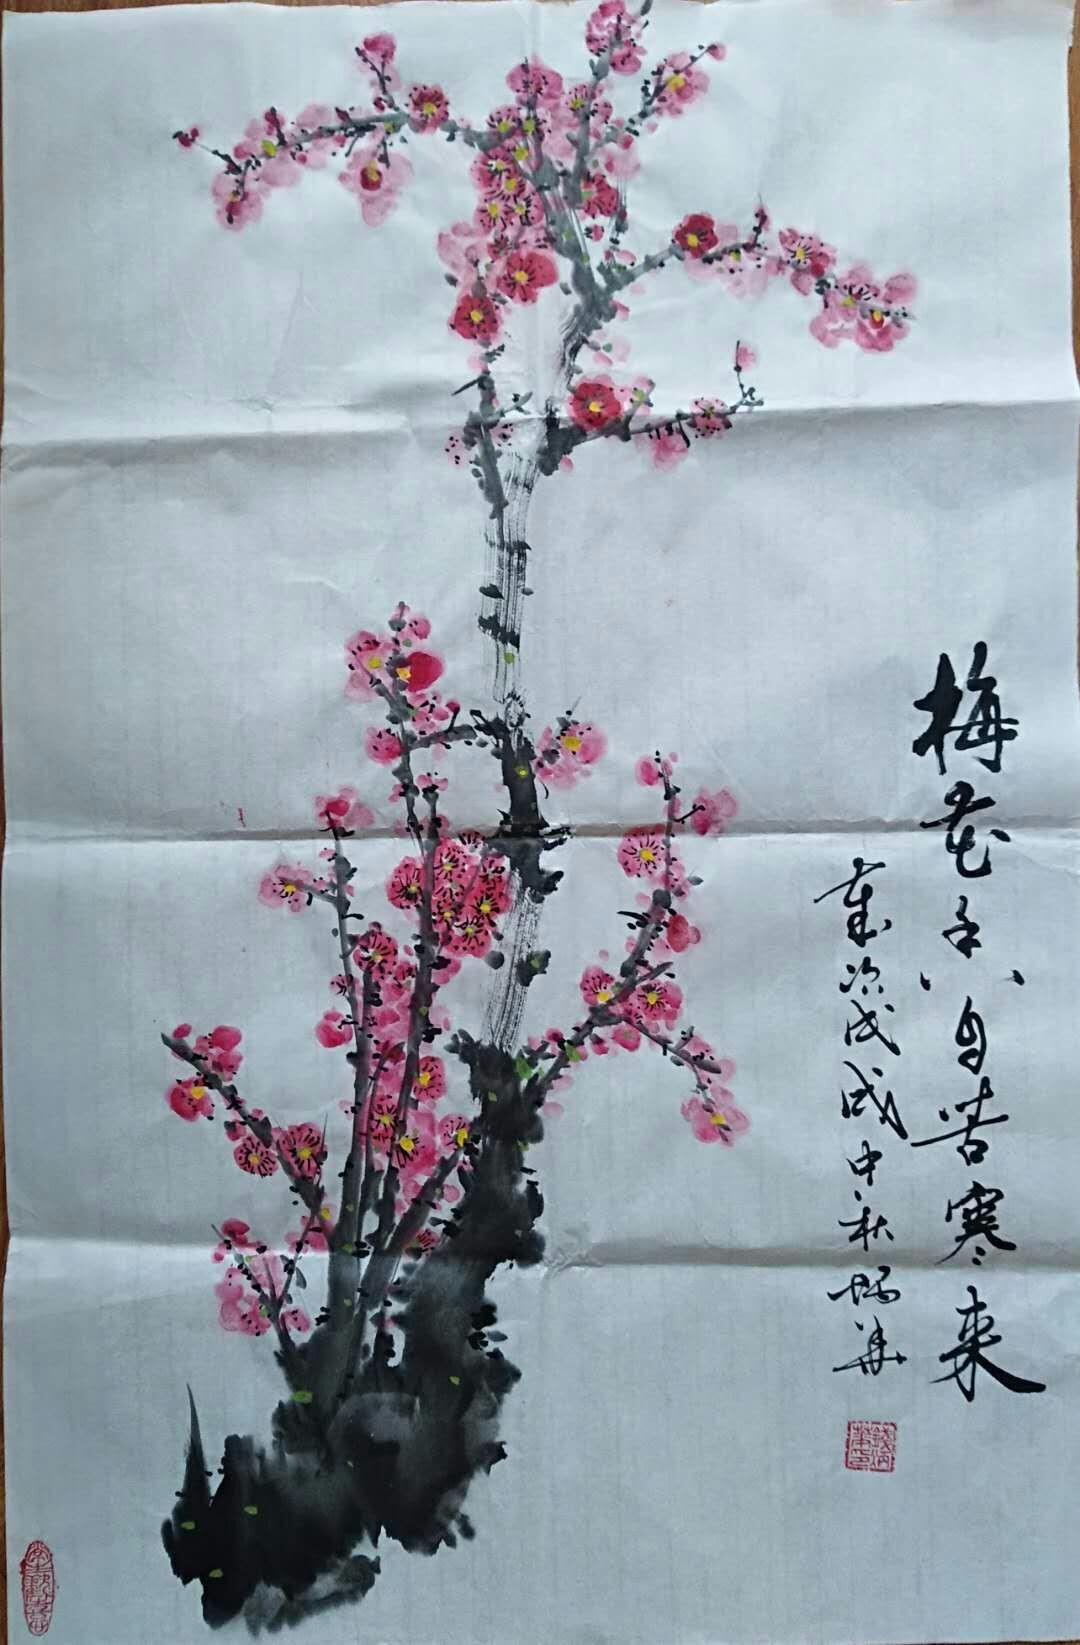 梅花香自苦寒来
歲次戊戌中秋炳華